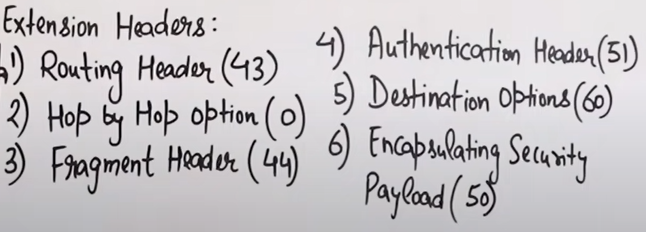 Extension Headers:
1) Routing Header (43)
2) Hop by Hop option (0)
3) Fragment Header (44)
4) Authentication Header (51)
5) Destination Options (60)
6) Encapsulating Security
Payload (50)